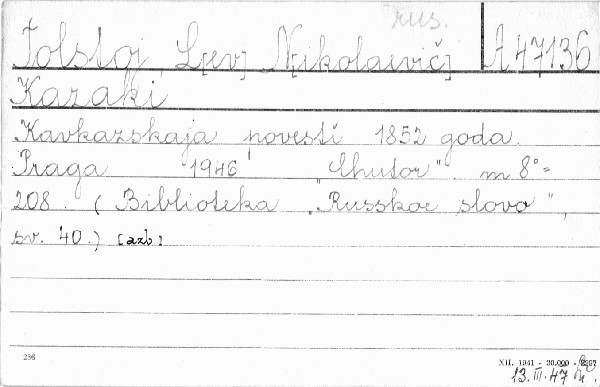 rus.
Tolstoj, L[ev] N[ikolaevič] A 47136
Kazaki
Kavkazskaja povestí 1852 goda.
Praga 1946 "Chutor". m 8°=
208. (Biblioteka "Russkoe slovo",
sv. 40.) [azb]
286
XII. 1941 - 20.000 -
13. III. 47